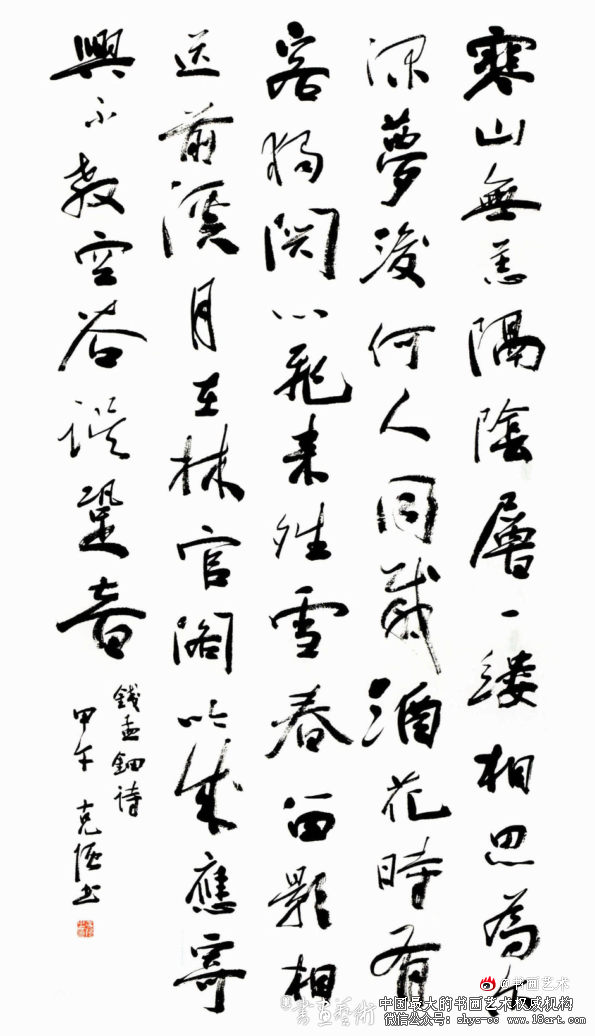 寒山無恙隔陰層一縷相思為尔
深夢後何人同載酒花時有
客独関心飛来殘雪春留影相
送前溪月在林官阁吟成應寄
興不教空谷誤跫音
錢孟鈿诗
甲午 克恆书
@书画艺术
書画藝術
中国最大的书画艺术权威机构
微信公众号：shys-cc www.18art.com